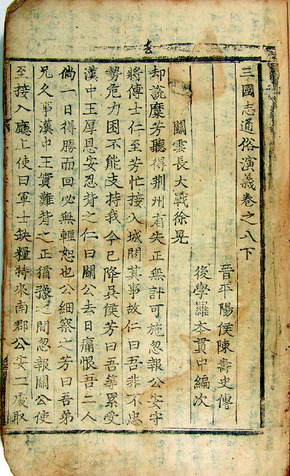 三國志通俗演義卷之八下
晉平陽侯陳壽史傳
後學羅本貫中編次
關雲長大戰徐晃
却説糜芳聽得荆州有失正無計可施忽報公安守
將傅士仁至芳忙接入城問其事故仁曰吾非不忠
勢危力困不能支持我今已降吳侯芳曰吾輩累受
漢中王厚恩安忍背之仁曰關公去日痛恨吾二人
倘一日得勝而回必無輕恕也公細察之芳曰吾弟
兄久事漢中王實難背之正猶豫之間忽報關公使
至接入廳上使曰軍士缺糧特來南郡公安二處取